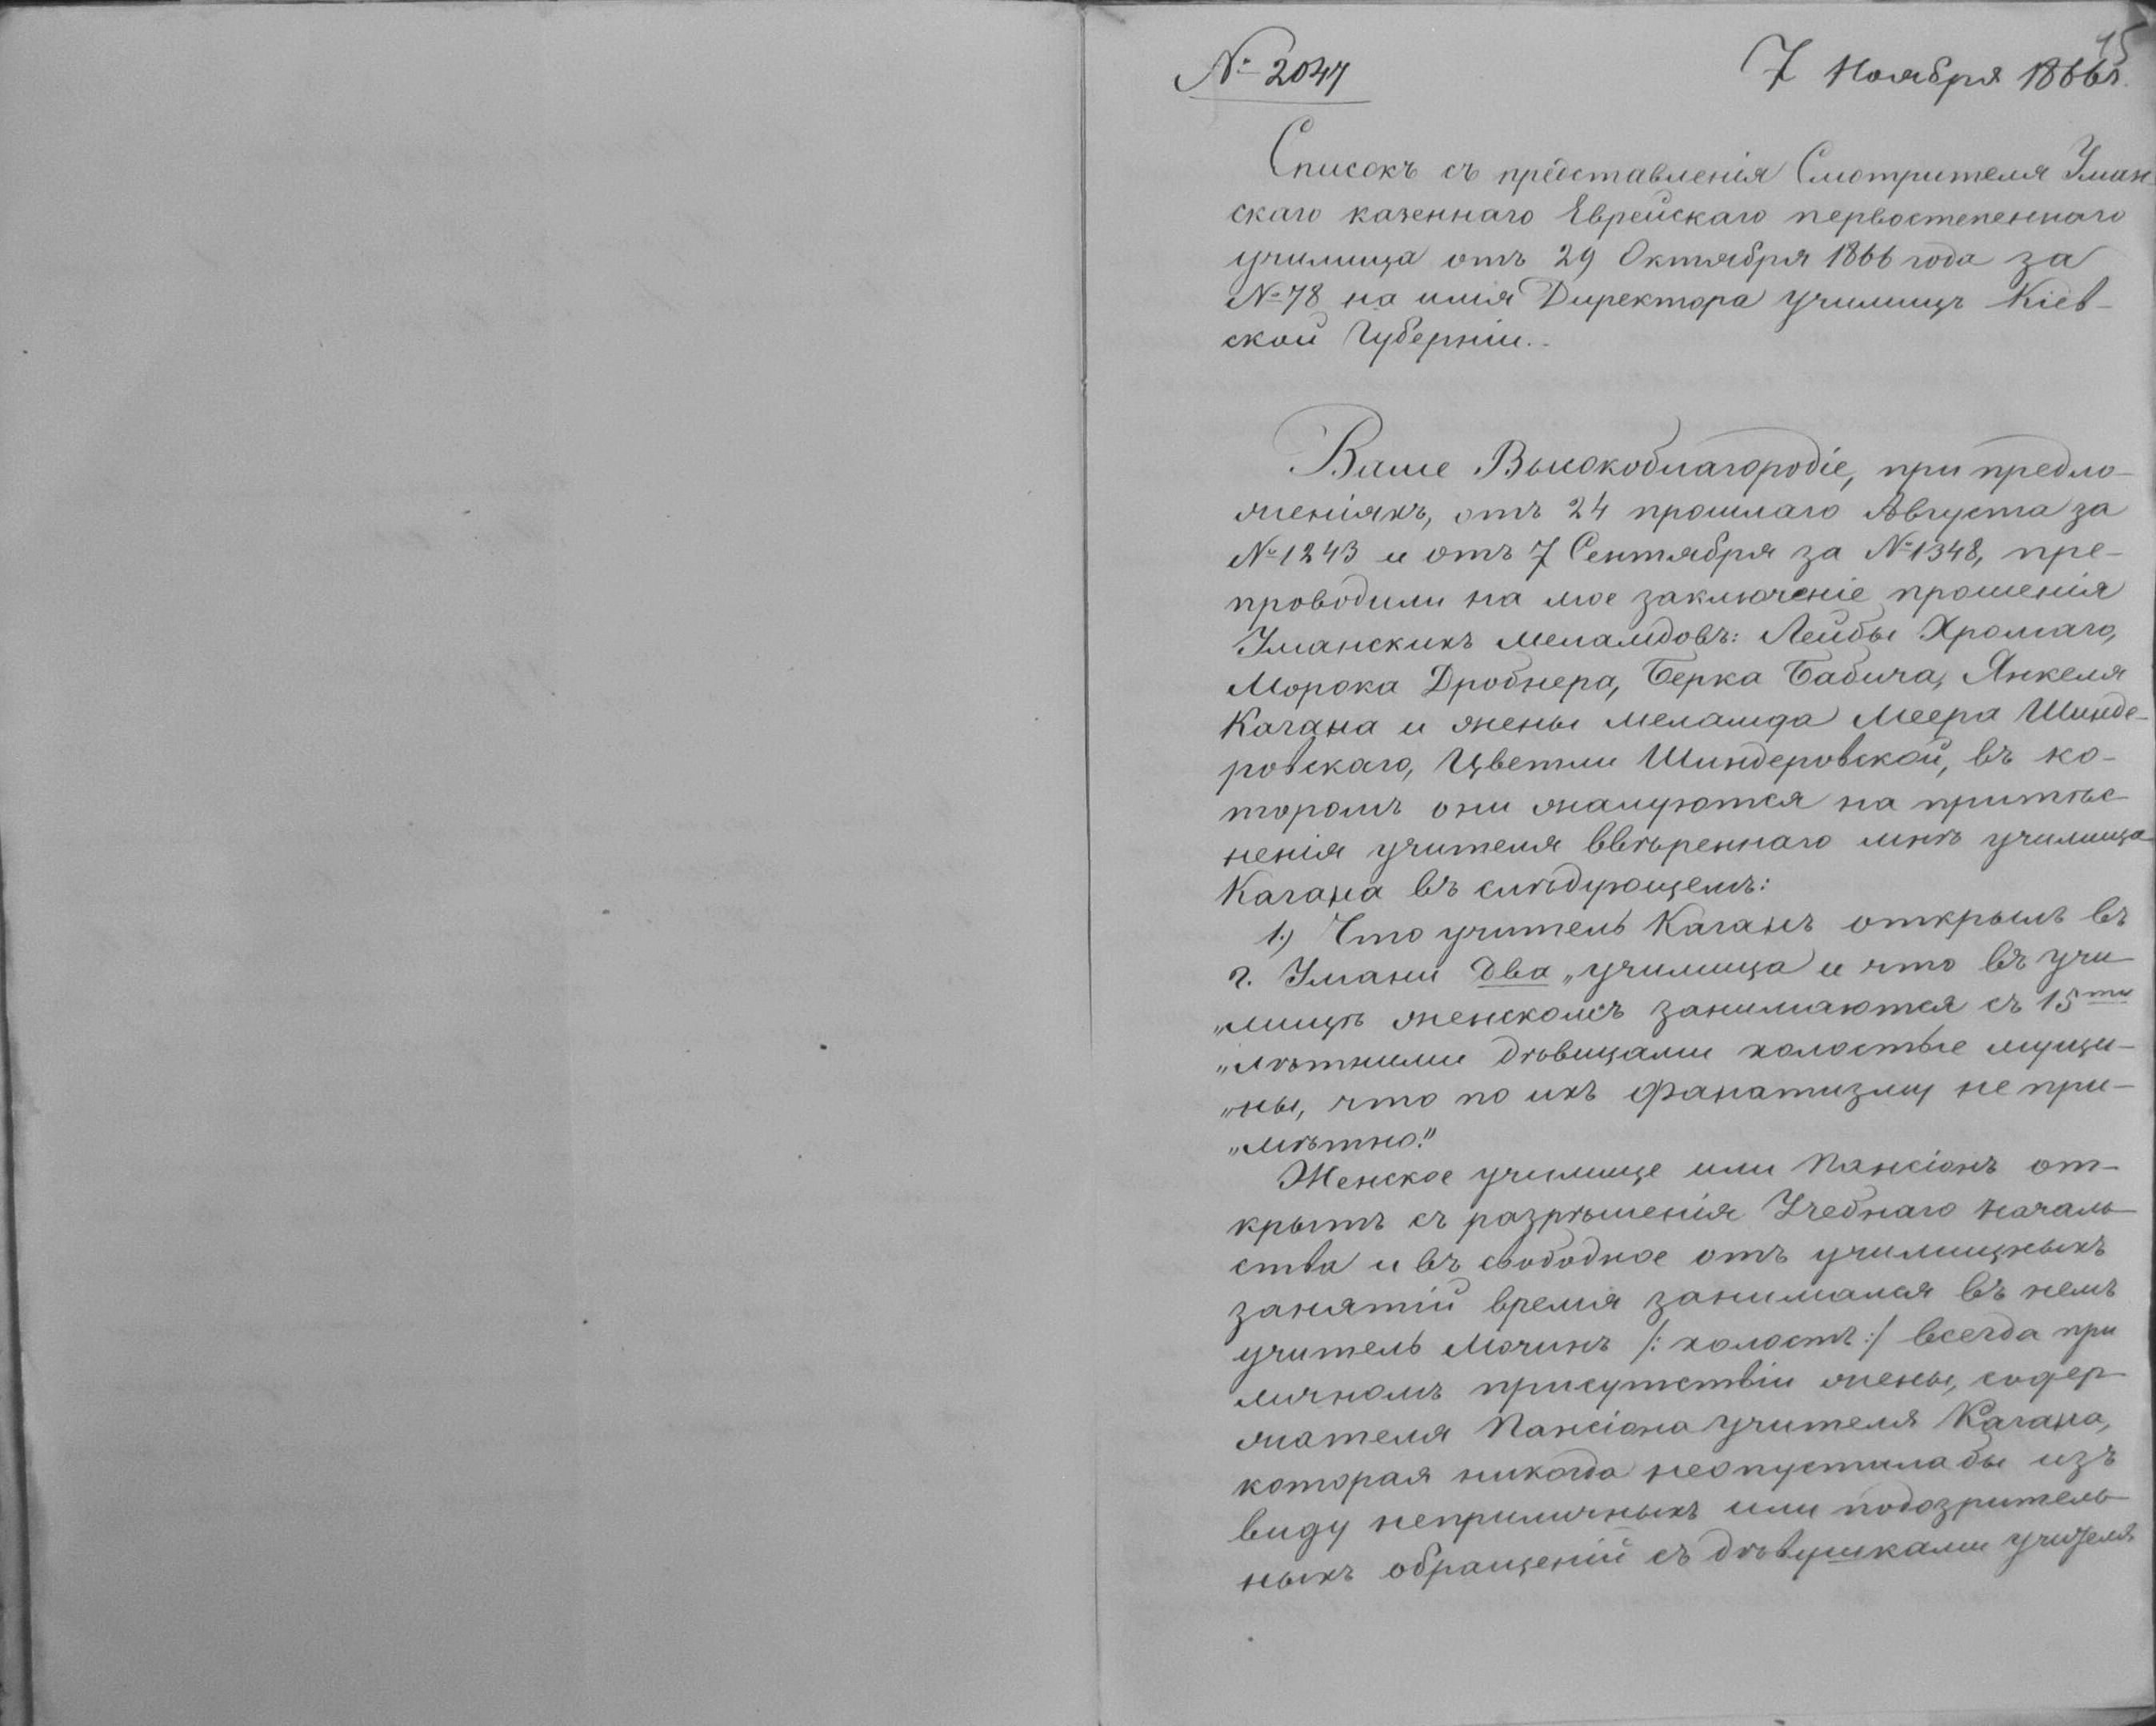 15
№ 2047 7 Ноября 1866 г.
Списокъ съ представленія Смотрителя Уман-
скаго казеннаго Еврейскаго первостепеннаго
училища отъ 29 Октября 1866 года за
№ 78 на имя Директора училищъ Кіев-
ской Губерніи.
Ваше Высокоблагородіе, при предло-
женіяхъ, отъ 24 прошлаго Августа за
№ 1243 и отъ 7 Сентября за № 1348, пре-
проводили на мое заключеніе прошенія
Уманскихъ меламдовъ: Лейбы Хромаго,
Морока Дробнера, Берка Бабича, Янкеля
Кагана и жены меламда Меера Шинде-
ровскаго, Цветли Шиндеровской, въ ко-
торомъ они жалуются на притѣс-
ненія учителя ввѣреннаго мнѣ училища
Кагана въ слѣдующемъ:
1.) Что учитель Каганъ открылъ въ
г. Умани два „училища и что въ учи-
„лищѣ женскомъ занимаются съ 15ти
„лѣтними дѣвицами холостые мущи-
„ны, что по ихъ фанатизму не при-
„мѣтно."
Женское училище или Пансіонъ от-
крытъ съ разрѣшенія Учебнаго Началь-
ства и въ свободное отъ училищныхъ
занятій время занимался въ немъ
учитель Мочинъ /: холостъ :/ всегда при
личномъ присутствіи жены, содер-
жателя Пансіона учителя Кагана,
которая никогда неопустила бы изъ
виду неприличныхъ или подозритель-
ныхъ обращеній съ дѣвушками учителя